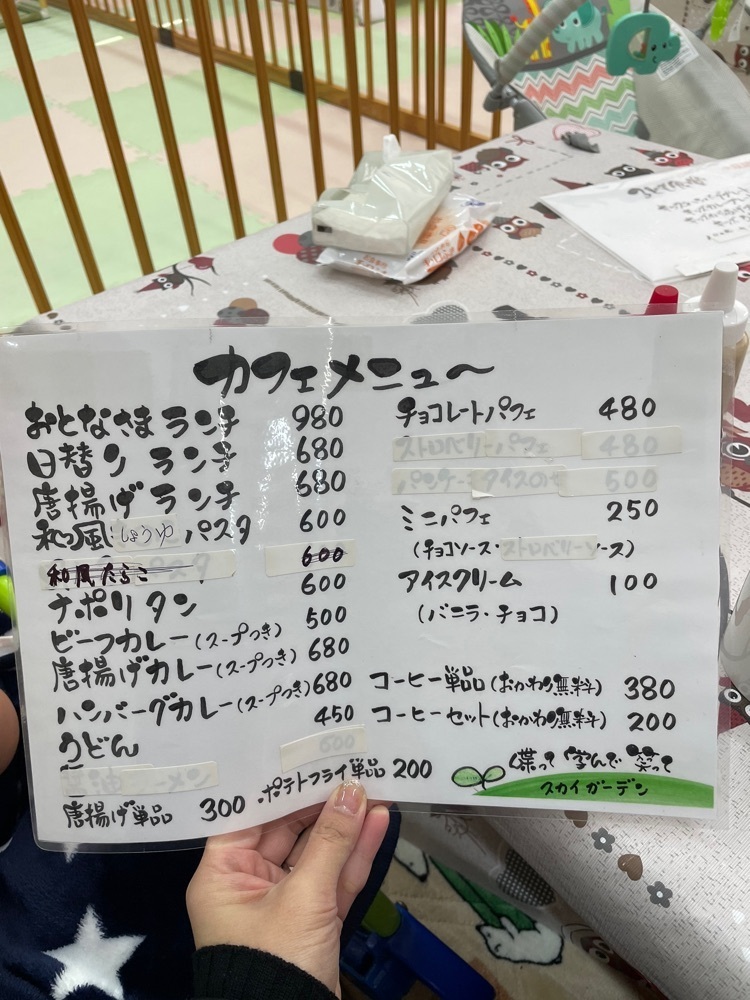 カフェメニュ〜
おとなさまランチ 980
日替りランチ 680
唐揚げランチ 680
和風しょうゆパスタ 600
和風たらこ 600
ナポリタン 600
ビーフカレー(スープつき) 500
唐揚げカレー(スープつき) 680
ハンバーグカレー(スープつき) 680
うどん 450
油ラーメン 600
唐揚げ単品 300
・ポテトフライ単品 200
チョコレートパフェ 480
ストロベリーパフェ 480
パンケーキアイスのせ 500
ミニパフェ 250
(チョコソース・ストロベリーソース)
アイスクリーム 100
(バニラ・チョコ)
コーヒー単品(おかわり無料) 380
コーヒーセット(おかわり無料) 200
喋って 学んで 笑って
スカイガーデン